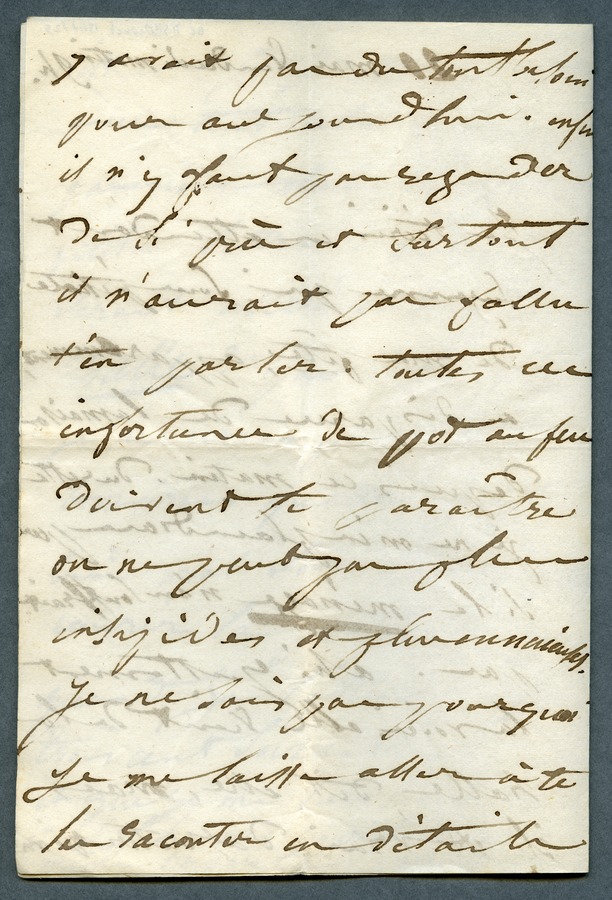 y avait pas du tout besoin
pour aujourd'hui. enfin
il n'y faut pas regarder
de si près et surtout
il n'aurait pas fallu
t'en parler. toutes ces
infortunes de pot au feu
doivent te paraître
on ne peut pas plus
insipides et plus ennuieuses.
Je ne sais pas pourquoi
je me laisse aller à te
les raconter en détails